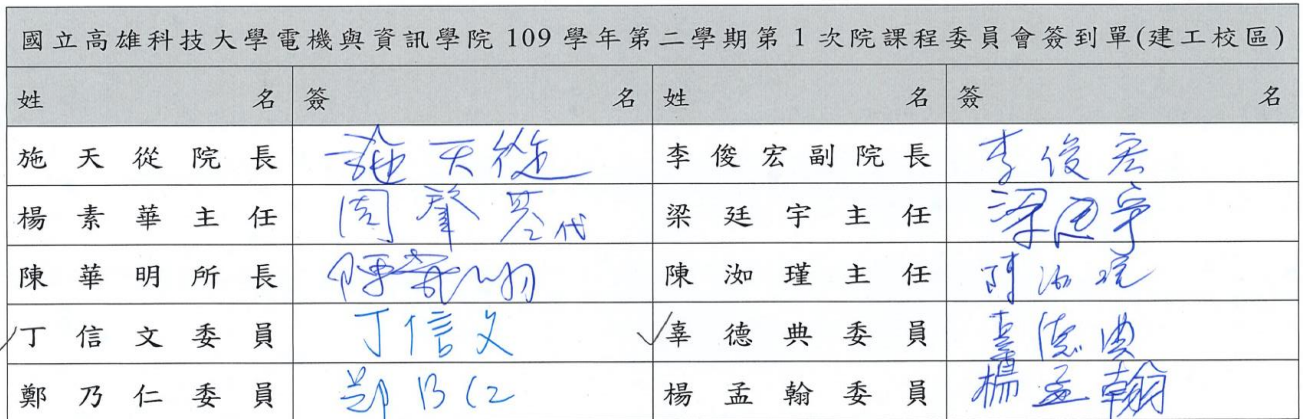 國立高雄科技大學電機與資訊學院 109 學年第二學期第 1 次院課程委員會簽到單(建工校區)
姓名 簽名 姓名 簽名
施天從院長 施天從 李俊宏副院長 李俊宏
楊素華主任 周肇基代 梁廷宇主任 梁廷宇
陳華明所長 陳華明 陳洳瑾主任 陳洳瑾
丁信文委員 丁信文 辜德典委員 辜德典
鄭乃仁委員 鄭乃仁 楊孟翰委員 楊孟翰